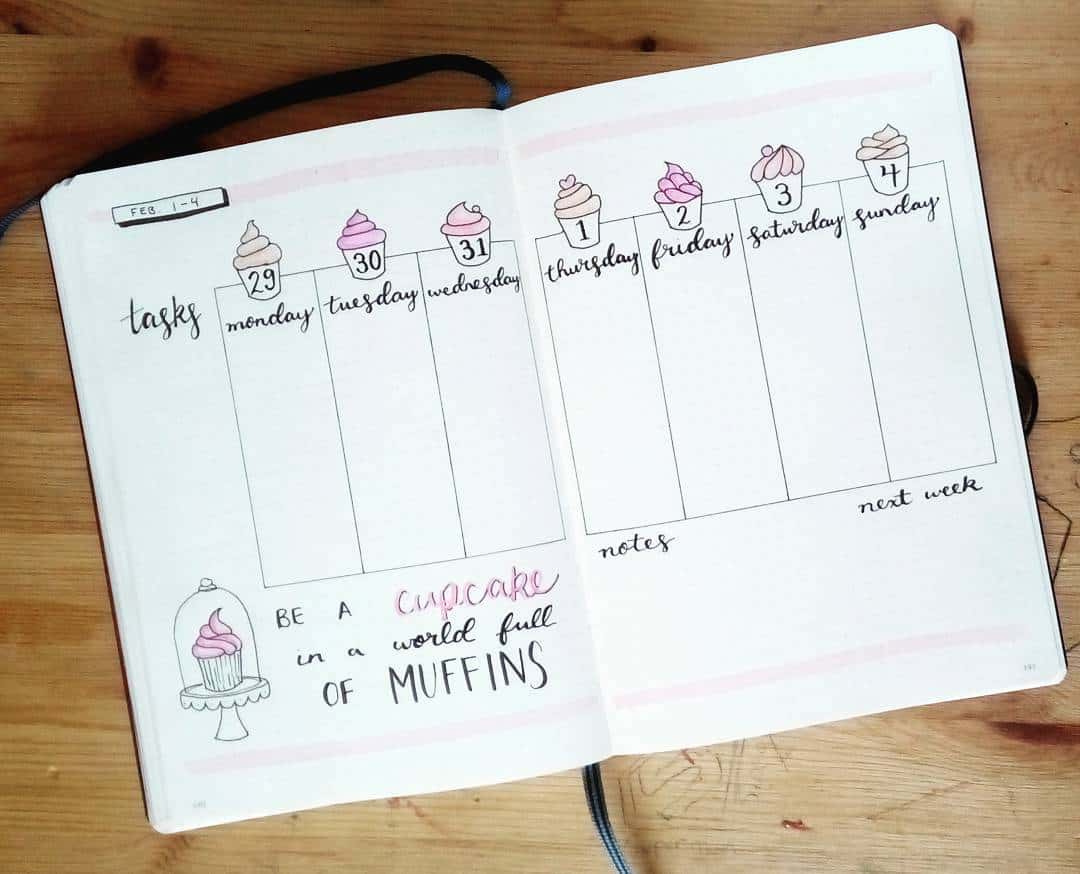 FEB. 1-4
29 30 31 1 2 3 4
tasks monday tuesday wednesday thursday friday saturday sunday
next week
notes
BE A cupcake
in a world full
OF MUFFINS